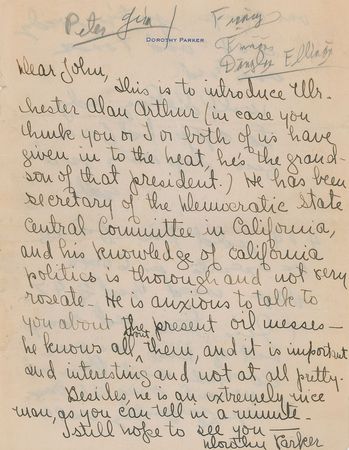 Peter Jim
Finny
DOROTHY PARKER
Douglas Ellings
Dear John,
This is to introduce Mr.
Chester Alan Arthur (in case you
think you or I or both of us have
given in to the heat, he's the grand-
son of that president.) He has been
secretary of the Democratic State
Central Committee in California,
and his knowledge of California
politics is thorough and not very
roseate – He is anxious to talk to
you about the present oil messes –
he knows all about them, and it is important
and interesting and not at all pretty.
Besides, he is an extremely nice
man, as you can tell in a minute –
I still hope to see you –
Dorothy Parker